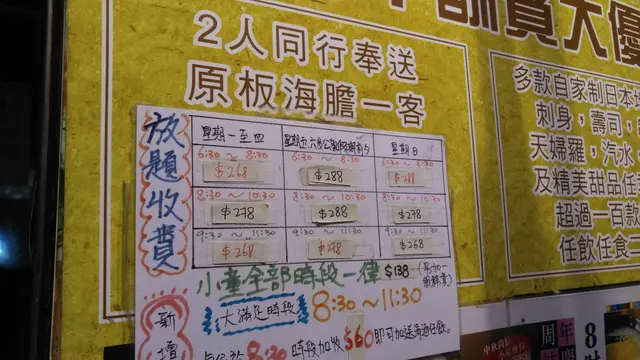 大優
2人同行奉送
原板海膽一客
多款自家製日本
刺身，壽司，
天婦羅，汽水，
及精美甜品任
超過一百款
任飲任食一
放題收費
星期一至四
星期日
6:30 ~ 8:30
6:30 ~ 8:30
6:30 ~ 8:30
$268
$288
$288
8:30 ~ 10:30
8:30 ~ 10:30
8:30 ~ 10:30
$278
$288
$278
9:30 ~ 11:30
9:30 ~ 11:30
9:30 ~ 11:30
$268
$278
$268
小童全部時段一律
$138
大滿足時段
8:30 ~ 11:30
新增
8:30 時段加收 $60 即可加送
任飲。
周年
8